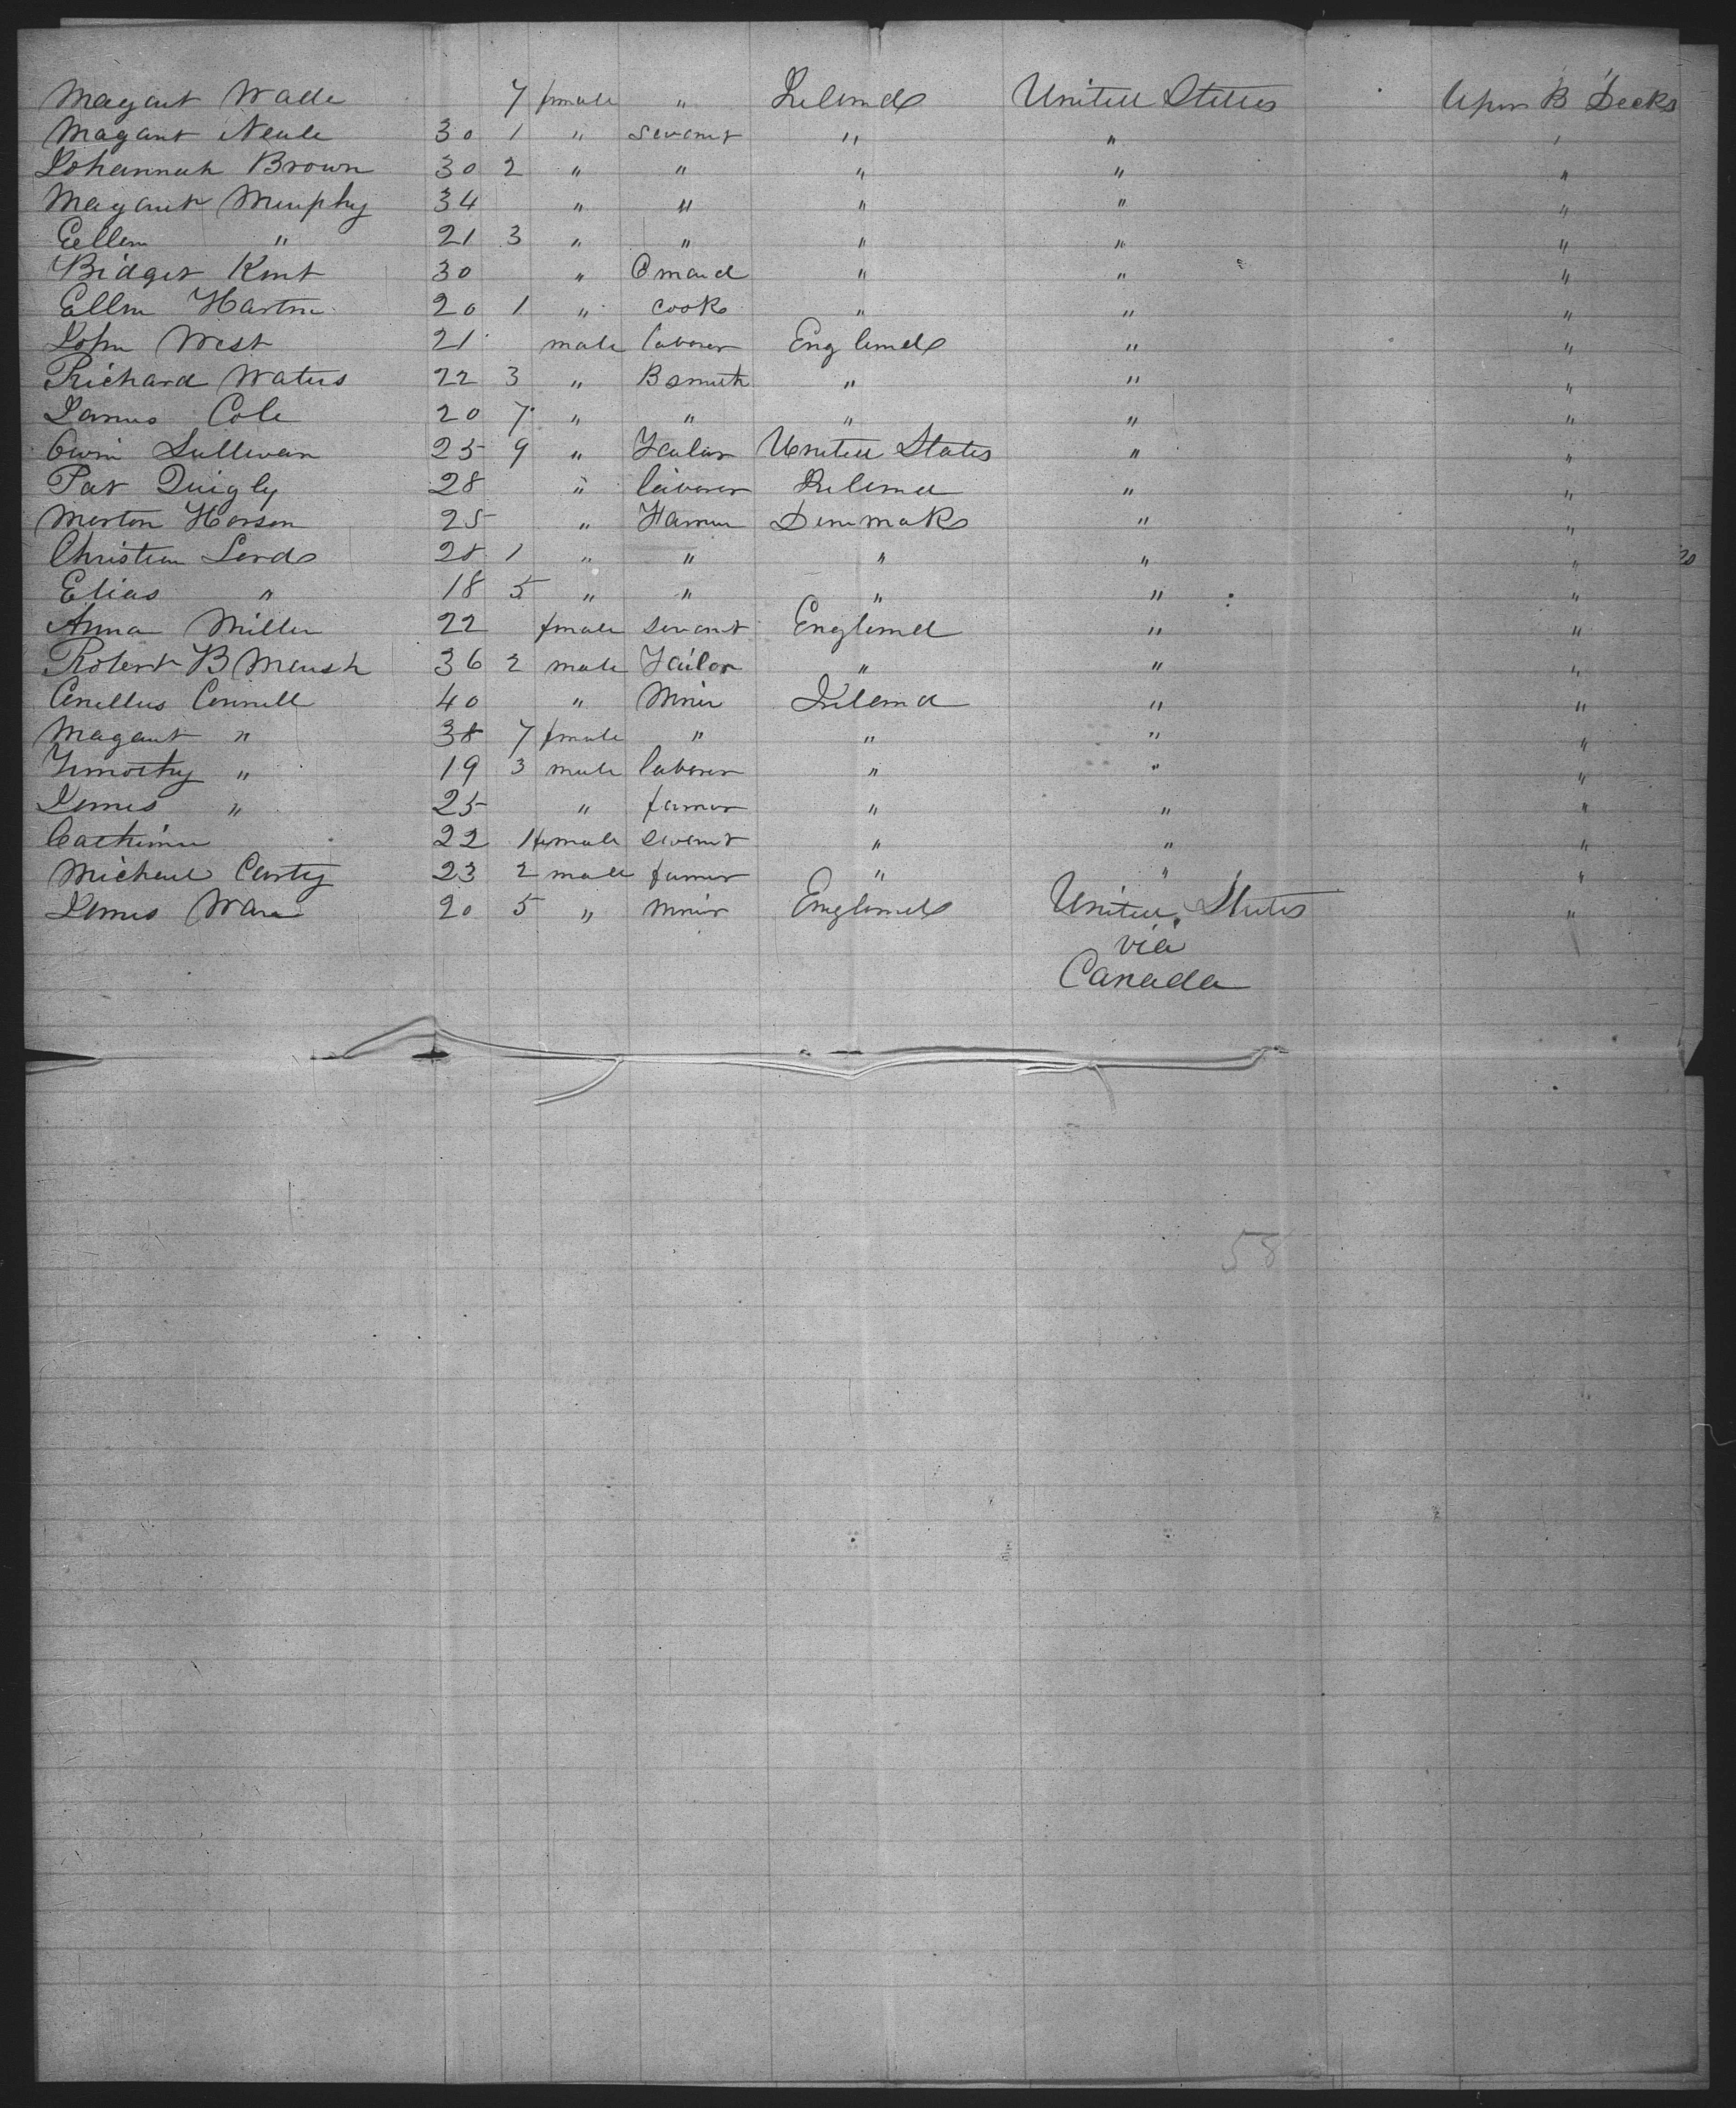 Magaret Wade 7 female " Ireland United States Upon B Decks
Magaret Neale 30 1 " servant " " "
Johannah Brown 30 2 " " " " "
Magaret Murphy 34 " " " " "
Eellen " 21 3 " " " " "
Bidget Kent 30 " C maid " " "
Ellen Hartin 20 1 " cook " " "
John West 21 male laborer England " "
Richard Waters 22 3 " B smith " " "
James Cole 20 7 " " " " "
Owin Sullivan 25 9 " Tailor United States " "
Pat Quigly 28 " laborer Ireland " "
Morton Hanson 25 " Farmer Denmark " "
Christian Lard 28 1 " " " " "
Elias " 18 5 " " " " "
Anna Miller 22 female servant England " "
Robert B Marsh 36 2 male Tailor " " "
Cornelius Connell 40 " Miner Ireland " "
Magaret " 38 7 female " " " "
Timothy " 19 3 male laborer " " "
James " 25 " farmer " " "
Catherine 22 1 female servant " " "
Michael Carty 23 2 male farmer " " "
James Ware 20 5 " Miner England United States "
via
Canada
58